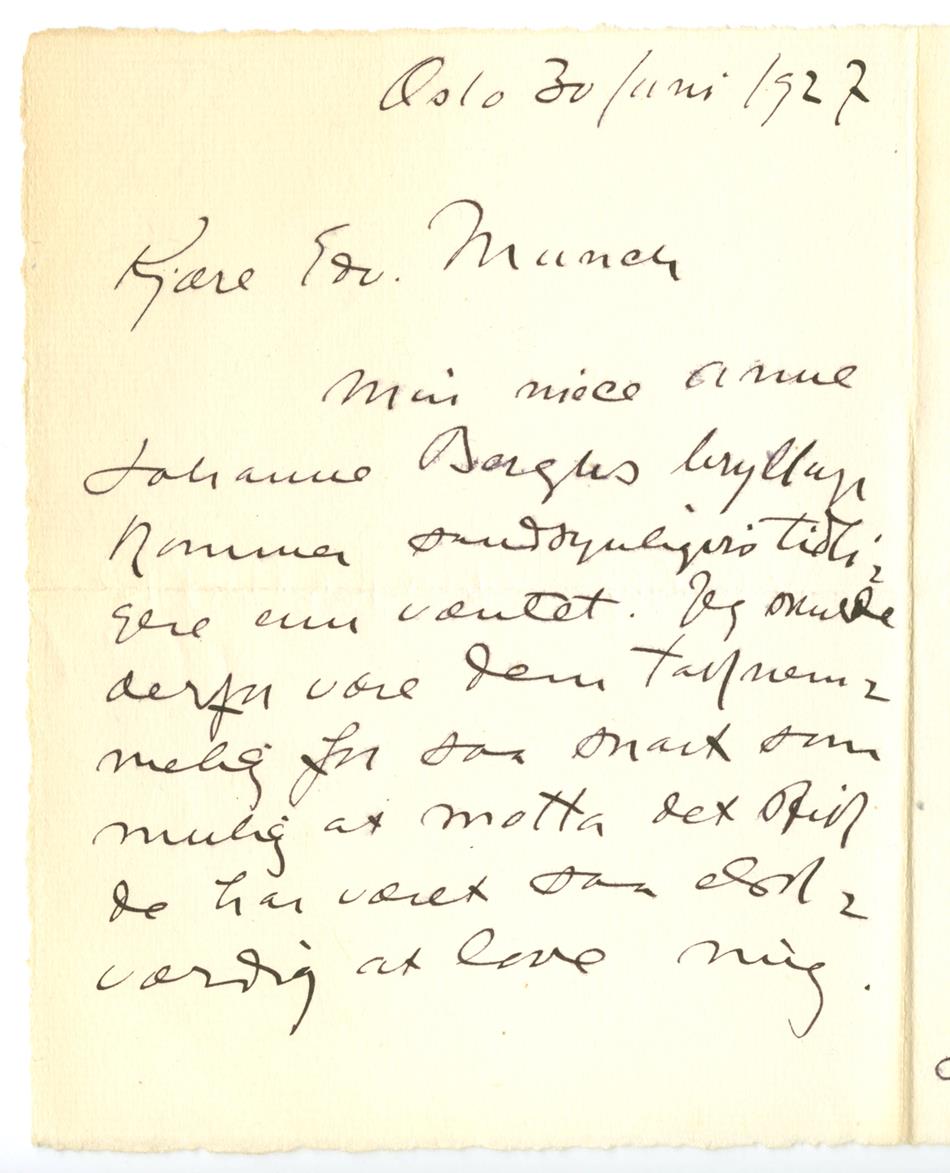 Oslo 30 Juni 1927
Kjære Edv. Munch
Min niece Anne
Johanne Berghs bryllup
kommer sandsynligvis tidli-
gere enn væntet. Jeg skulde
derfor være Dem taknem-
melig for saa snart som
mulig at motta det Stik
De har været saa elsk-
værdig at love mig.